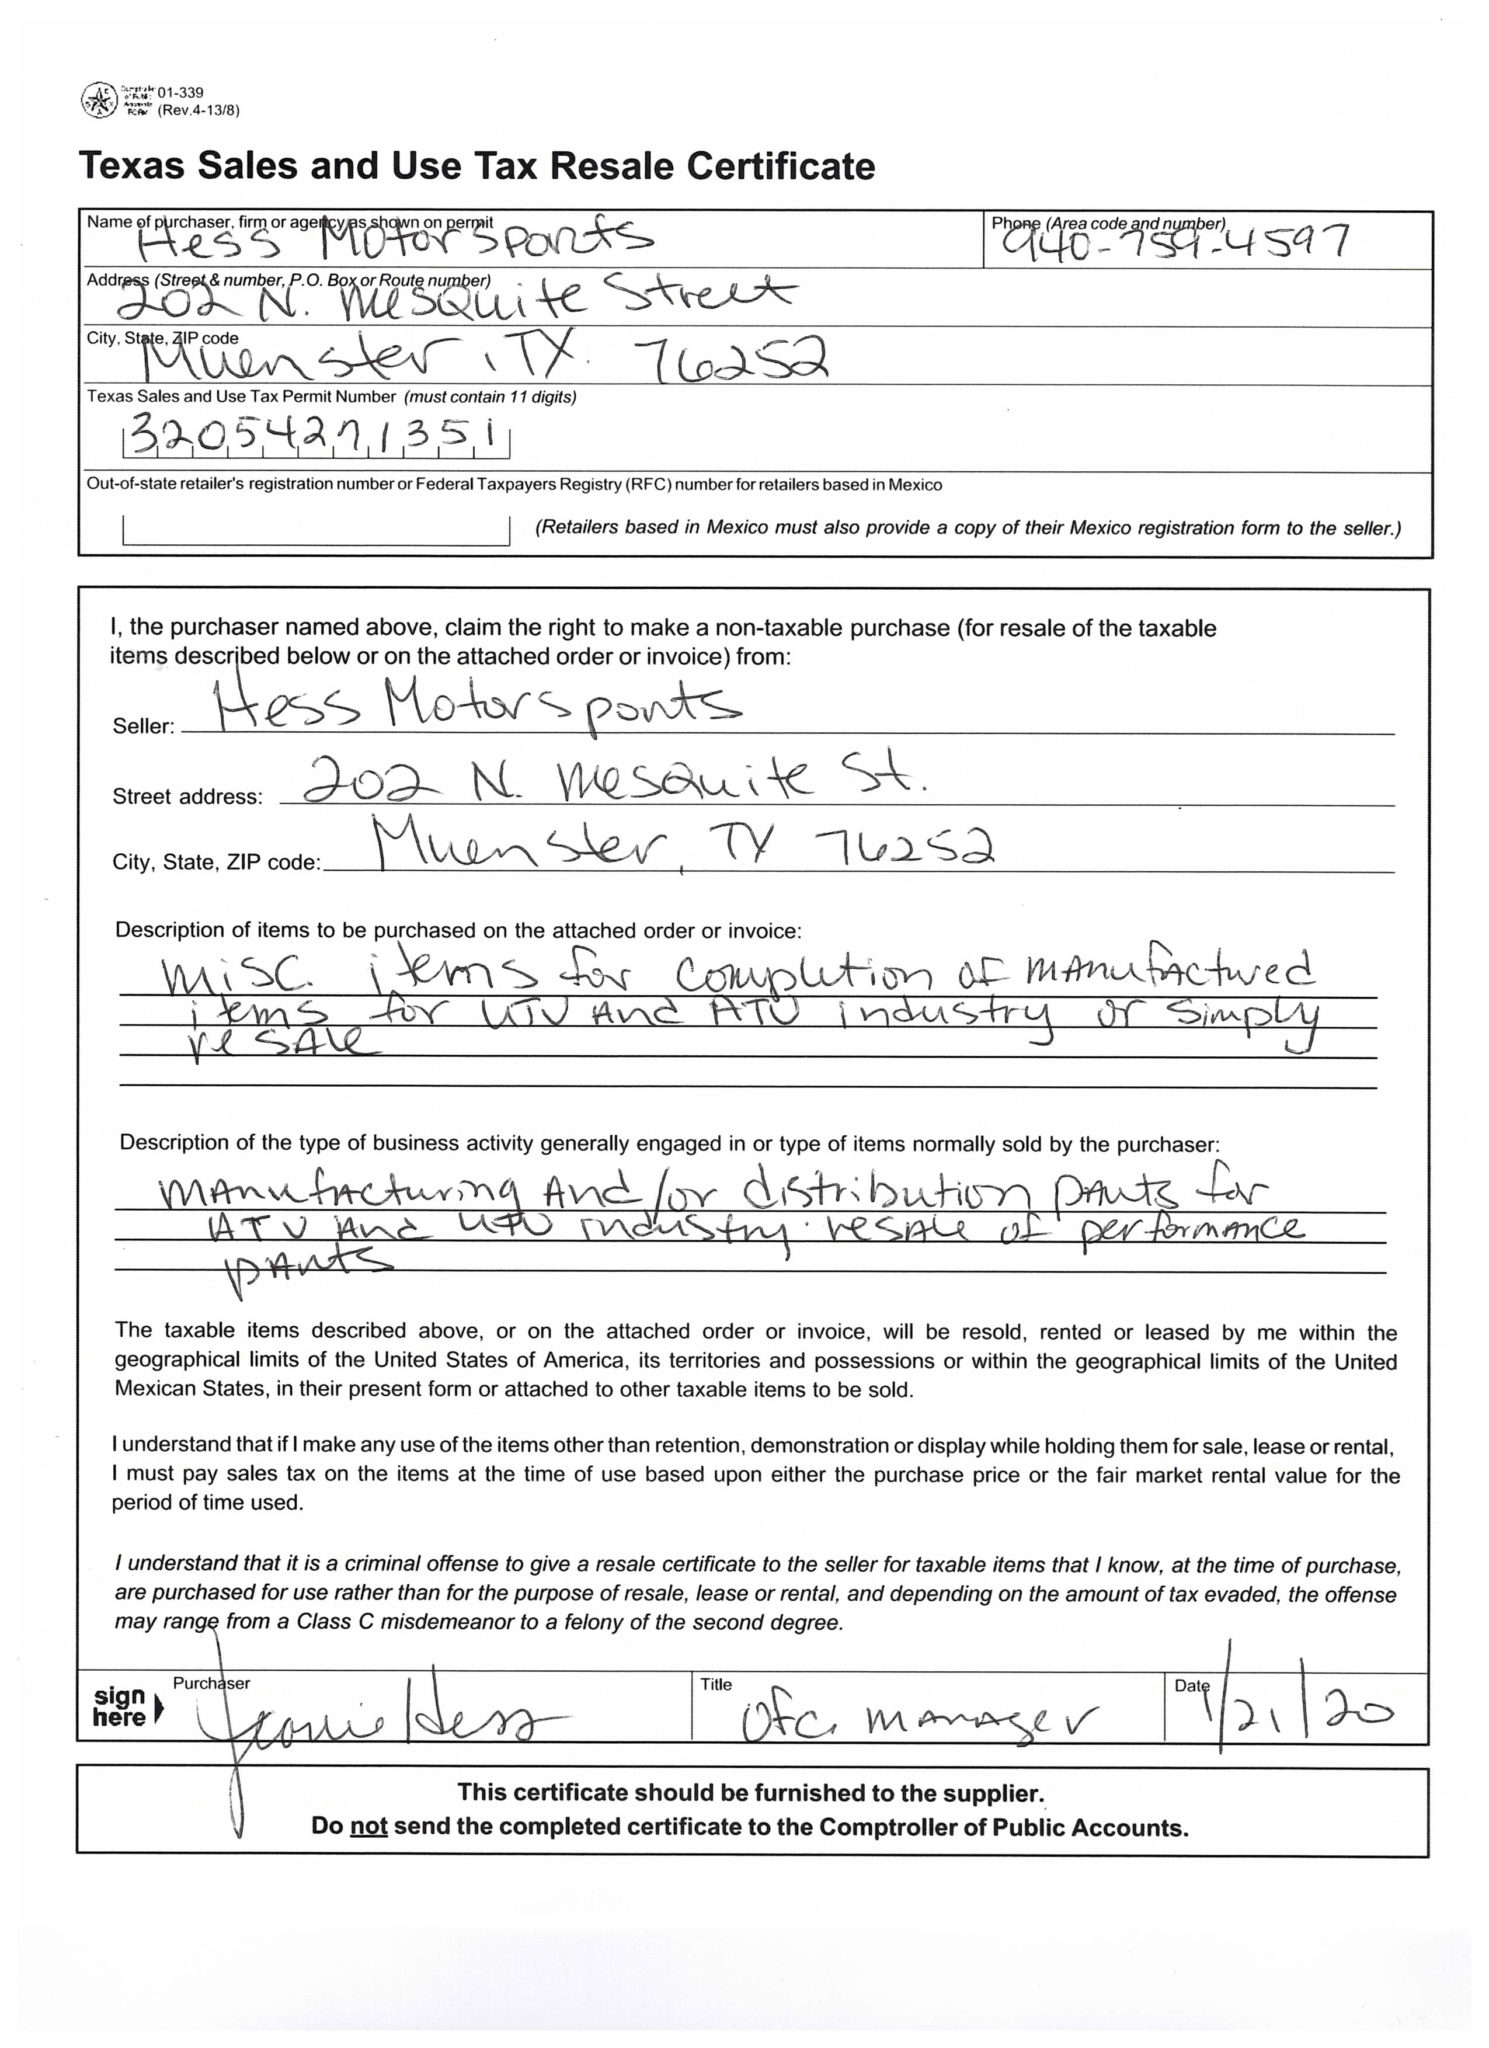 01-339
(Rev.4-13/8)
Texas Sales and Use Tax Resale Certificate
Name of purchaser, firm or agency as shown on permit
Hess Motorsports
Phone (Area code and number)
940-759-4597
Address (Street & number, P.O. Box or Route number)
202 N. Mesquite Street
City, State, ZIP code
Muenster, TX. 76252
Texas Sales and Use Tax Permit Number (must contain 11 digits)
32054271351
Out-of-state retailer's registration number or Federal Taxpayers Registry (RFC) number for retailers based in Mexico
(Retailers based in Mexico must also provide a copy of their Mexico registration form to the seller.)
I, the purchaser named above, claim the right to make a non-taxable purchase (for resale of the taxable
items described below or on the attached order or invoice) from:
Seller: Hess Motorsports
Street address: 202 N. Mesquite St.
City, State, ZIP code: Muenster, TX 76252
Description of items to be purchased on the attached order or invoice:
misc. items for completion of manufactured
items for UTV And ATV industry or simply
resale
Description of the type of business activity generally engaged in or type of items normally sold by the purchaser:
manufacturing And/or distribution parts for
ATV And UTV industry. resale of performance
parts
The taxable items described above, or on the attached order or invoice, will be resold, rented or leased by me within the
geographical limits of the United States of America, its territories and possessions or within the geographical limits of the United
Mexican States, in their present form or attached to other taxable items to be sold.
I understand that if I make any use of the items other than retention, demonstration or display while holding them for sale, lease or rental,
I must pay sales tax on the items at the time of use based upon either the purchase price or the fair market rental value for the
period of time used.
I understand that it is a criminal offense to give a resale certificate to the seller for taxable items that I know, at the time of purchase,
are purchased for use rather than for the purpose of resale, lease or rental, and depending on the amount of tax evaded, the offense
may range from a Class C misdemeanor to a felony of the second degree.
sign
here
Purchaser
Hess
Title
Ofc. manager
Date
1/21/20
This certificate should be furnished to the supplier.
Do not send the completed certificate to the Comptroller of Public Accounts.